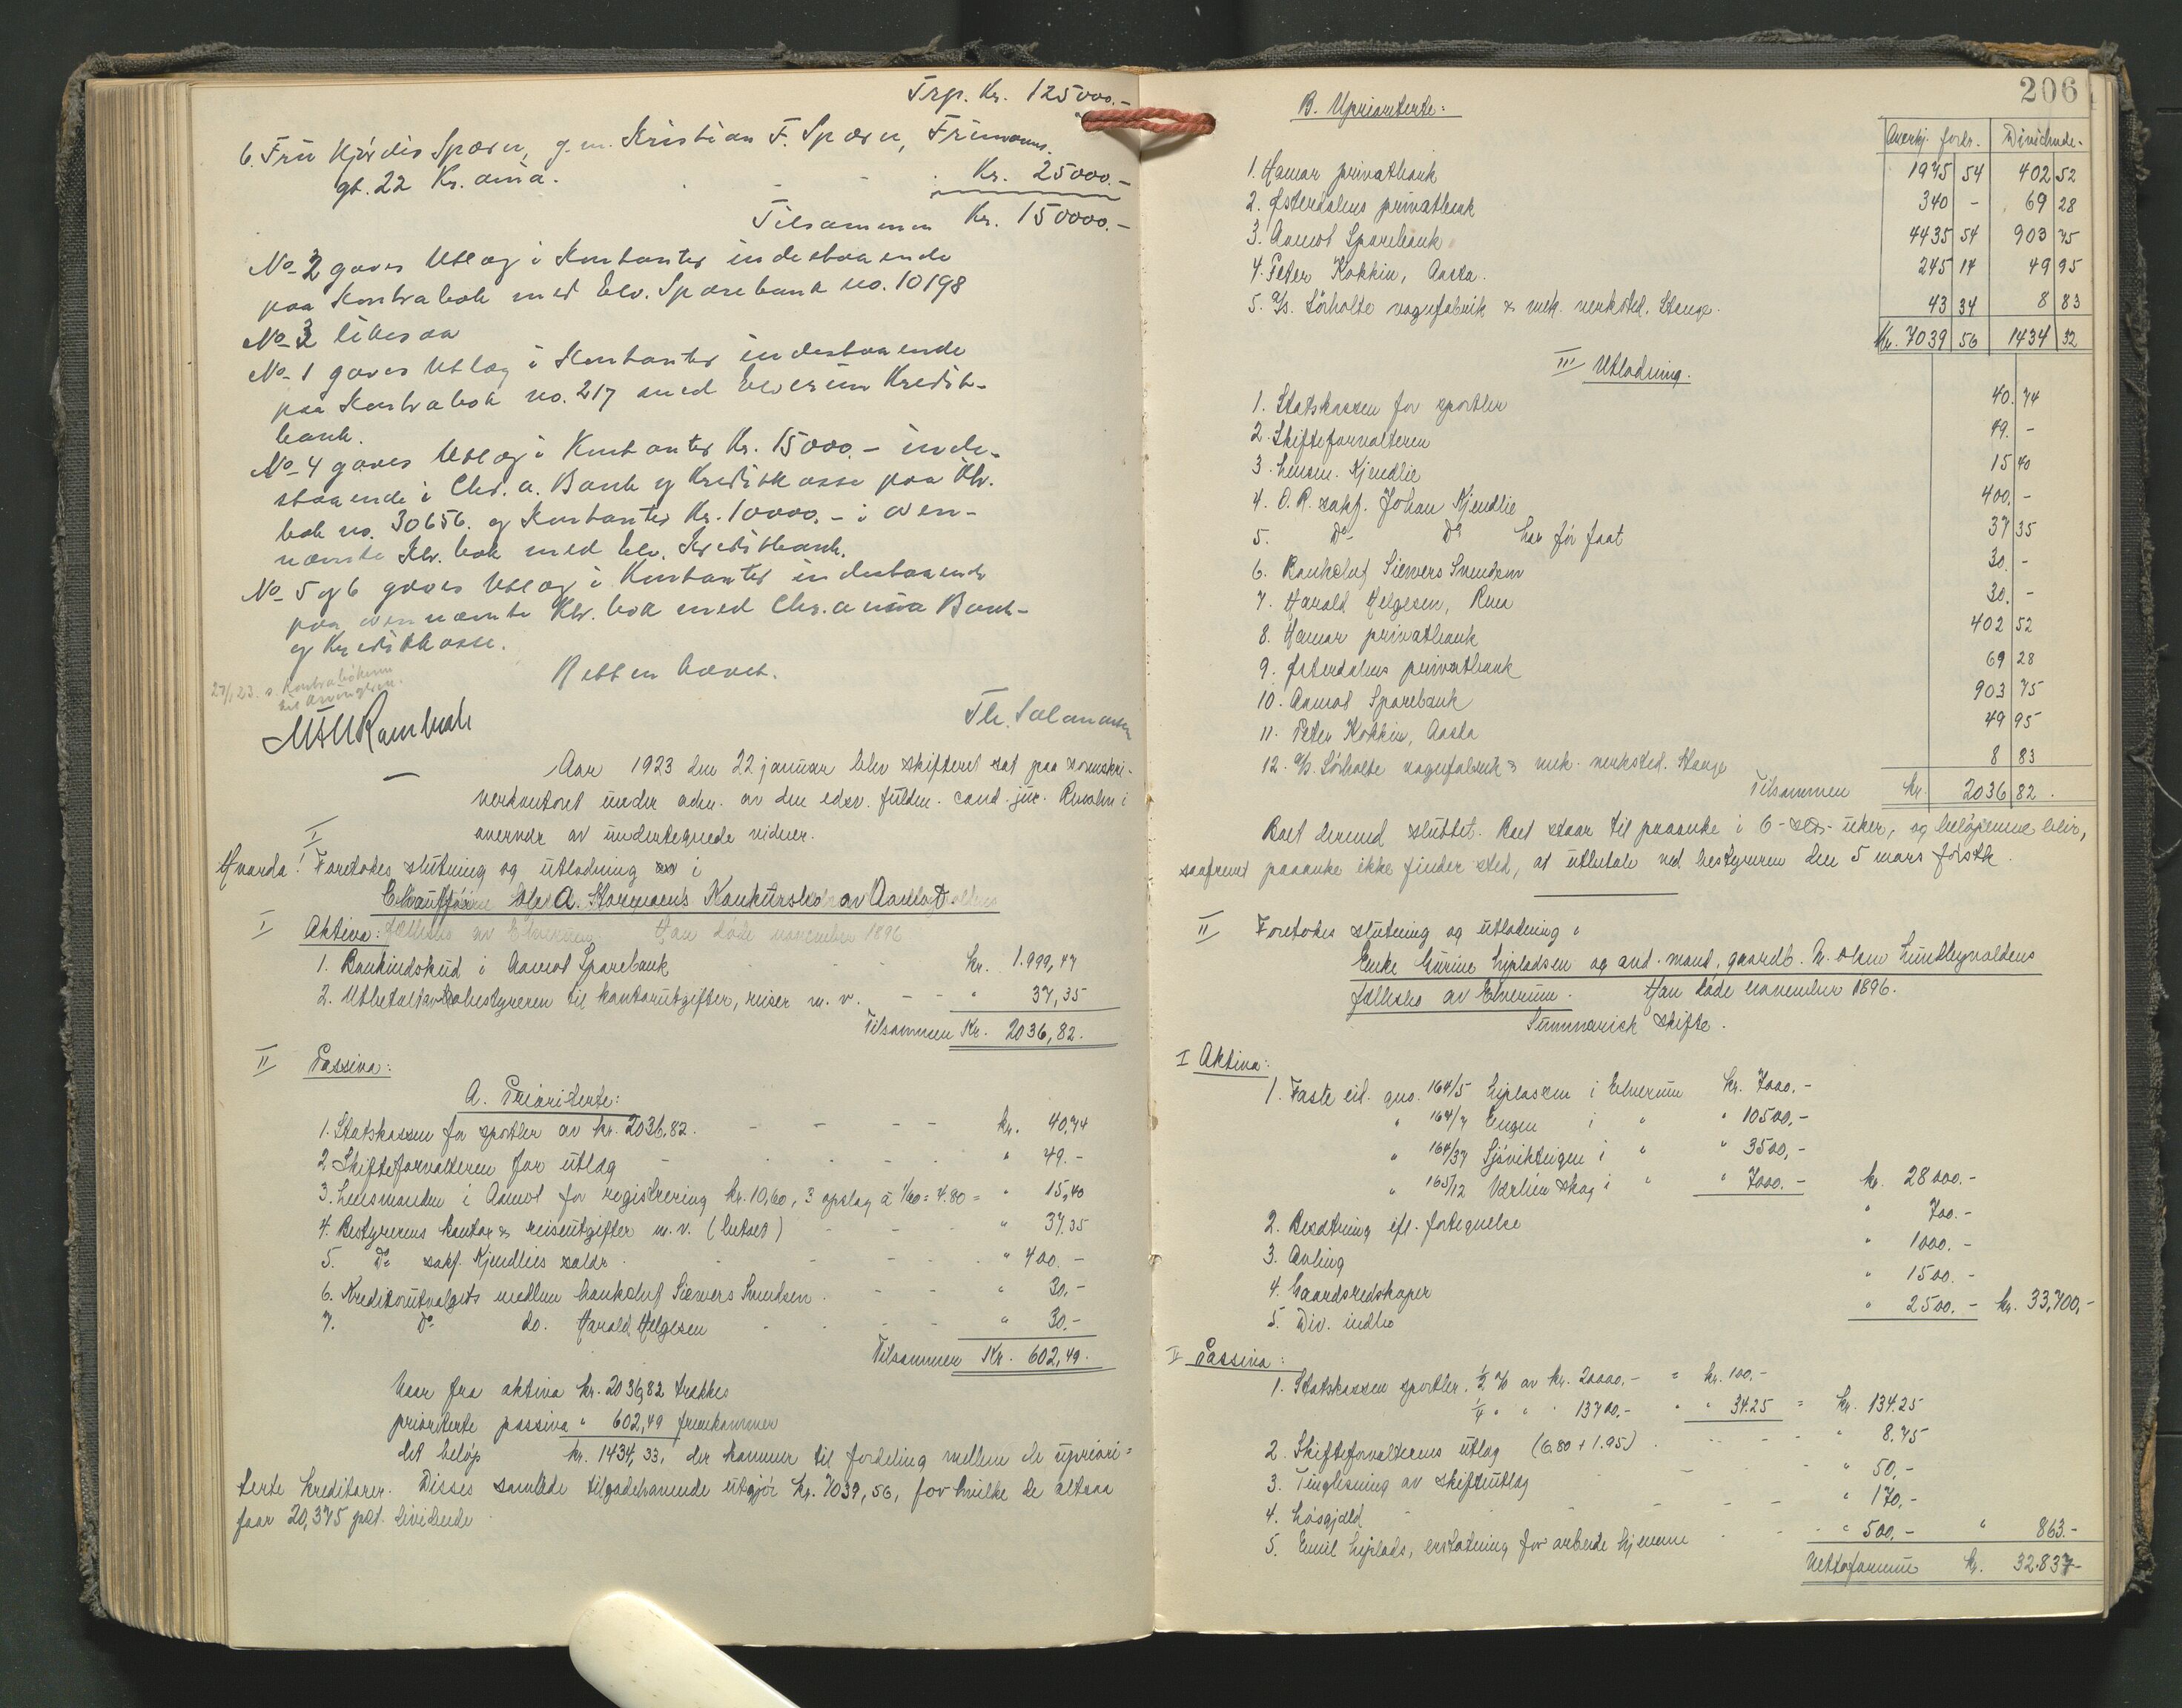 Trp. Kr. 125000.-
6. Fru Hjørdis Spæren, g.m. Kristian F. Spæren, Frimanns.
gt. 22 Kr. ania. Kr. 25000.-
Tilsammen Kr. 150000.-
No 2 gaves Utlæg i Kontanter indestaaende
paa Kontrabok med Elv. Sparebank no. 10198
No 3 likesaa
No 1 gaves Utlæg i Kontanter indestaaende
paa Kontrabok no. 217 med Elverum Kredit-
bank.
No 4 gaves Utlæg i Kontanter Kr. 15000.- inde-
staaende i Chr.a. Bank og Kreditkasse paa Ktr.
bok no. 30656. og Kontanter Kr. 10000.- i oven-
nævnte Ktr. bok med Elv. Kreditbank.
No 5 og 6 gaves Utlæg i Kontanter indestaaende
paa ovennævnte Ktr. bok med Chr.ania Bank-
og Kreditkasse.
Retten hævet.
27/1 23. s. Kontrabøkene
Aar 1923 den 22 januar blev skifteret sat paa sorenskri-
verkontoret under adm. av den edsv. fuldm. cand. jur. i
overvær av undertegnede vidner.
I
Hvorda! Foretokes slutning og utlodning i
A. Konkursbo av Aamot
fællesbo av Elverum. Han døde november 1896
I Aktiva:
1. Bankindskud i Aamot Sparebank kr. 1.999,47
2. Utbetalt av bobestyreren til kontorutgifter, reiser m.v. - - " 37,35
Tilsammen Kr. 2036,82.
II Passiva:
A. Prioriterte:
1. Statskassen for sportler av kr. 2036,82. - - - - kr. 40,74
2 Skifteforvalteren for utlæg - " 49.-
3. Lensmanden i Aamot for registrering kr. 10,60, 3 opslag à 1/60 = 4.80 = " 15,40
4. Bestyrerens kontor & reiseutgifter m.v. (hævet) - - " 37.35
5. Do sakf. Kjendlies salær. " 400.-
6. Kreditorutvalgets medlem bankchef Siewers Svendsen. " 30,-
7. Do do. Harald Helgesen " 30.-
Tilsammen Kr. 602,49.
Naar fra aktiva kr. 2036,82 trækkes
prioriterte passiva " 602,49 fremkommer
det beløp kr. 1434,33, der kommer til fordeling mellem de upriori=
terte kreditorer. Disses samlede tilgodehavende utgjør kr. 7039,56, for hvilke de altsaa
faar 20,375 pct. dividende
206
B. Uprioriterte:
Anerkj. fordr. Dividende.
1. Hamar privatbank 1975 54 402 52
2. Østerdalens privatbank 340 - 69 28
3. Aamot Sparebank 4435 54 903 75
4. Peter Kokkin, Aasta. 245 14 49 95
5. A/s. Sörholte vognfabrik & mek. verksted. Stange. 43 34 8 83
Kr. 7039 56 1434 32
III Utlodning.
1. Statskassen for sportler 40. 74
2. Skifteforvalteren 49. -
3. Lensm. Kjendlie 15 40
4. O.R. sakf. Johan Kjendlie 400. -
5. Do Do har før faat 37 35
6. Bankchef Siewers Svendsen 30. -
7. Harald Helgesen, Rena 30. -
8. Hamar privatbank 402 52
9. Østerdalens privatbank 69 28
10. Aamot Sparebank 903 75
11. Peter Kokkin, Aasta 49 95
12. A/s. Sörholte vognfabrik & mek. verksted. Stange 8 83
Tilsammen kr. 2036 82.
Boet dermed sluttet. Boet staar til paaanke i 6-sex-uker, og beløpene blir,
saafremt paaanke ikke finder sted, at utbetale ved bestyreren den 5 mars førstk.
II Foretokes slutning og utlodning i
Enke Gurine Lypladsen og avd. mand, gaardb. Olsen
fællesbo av Elverum. Han døde november 1896.
Summarisk skifte.
I Aktiva:
1. Faste eid. gno. 164/5 Lyplassen i Elverum kr. 7000.-
" 164/7 Engen i " " 10500,-
" 164/37 Sjøvikteigen i " " 3500,-
" 165/12 Værlien skog i " " 7000.- kr. 28000.-
2. Besætning efl. fortegnelse " 700.-
3. Avling " 1000.-
4. Gaardsredskaper " 1500.-
5. Div. indbo " 2500.- kr. 33,700,-
II Passiva:
1. Statskassen sportler. 1/2 % av kr. 20000.- = kr. 100.-
1/4 " " " 13700,- " " 34.25 = kr. 134.25
2. Skifteforvalterens utlæg (6.80 + 1.95) " 8.75
3. Tinglesning av skifteutlæg " 50,-
4. Løsgjæld " 170,-
5. Emil Lyplads, erstatning for arbeide hjemme " 500,- " 863.-
Nettoformue kr. 32.837-